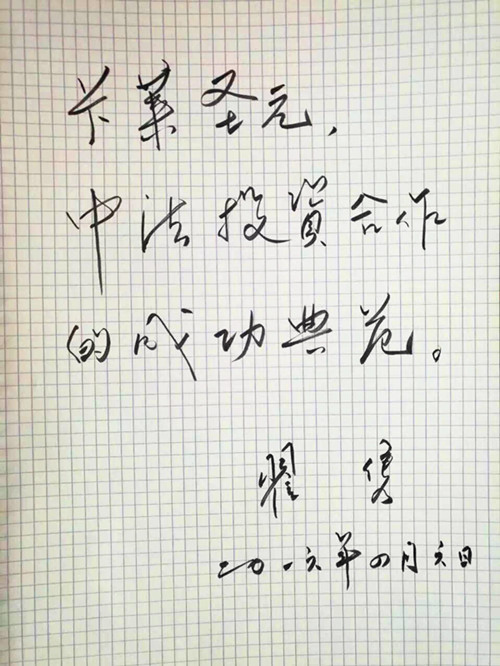 卡莱圣元，
中法投資合作
的成功典范。
翟隽
二〇一六年四月六日